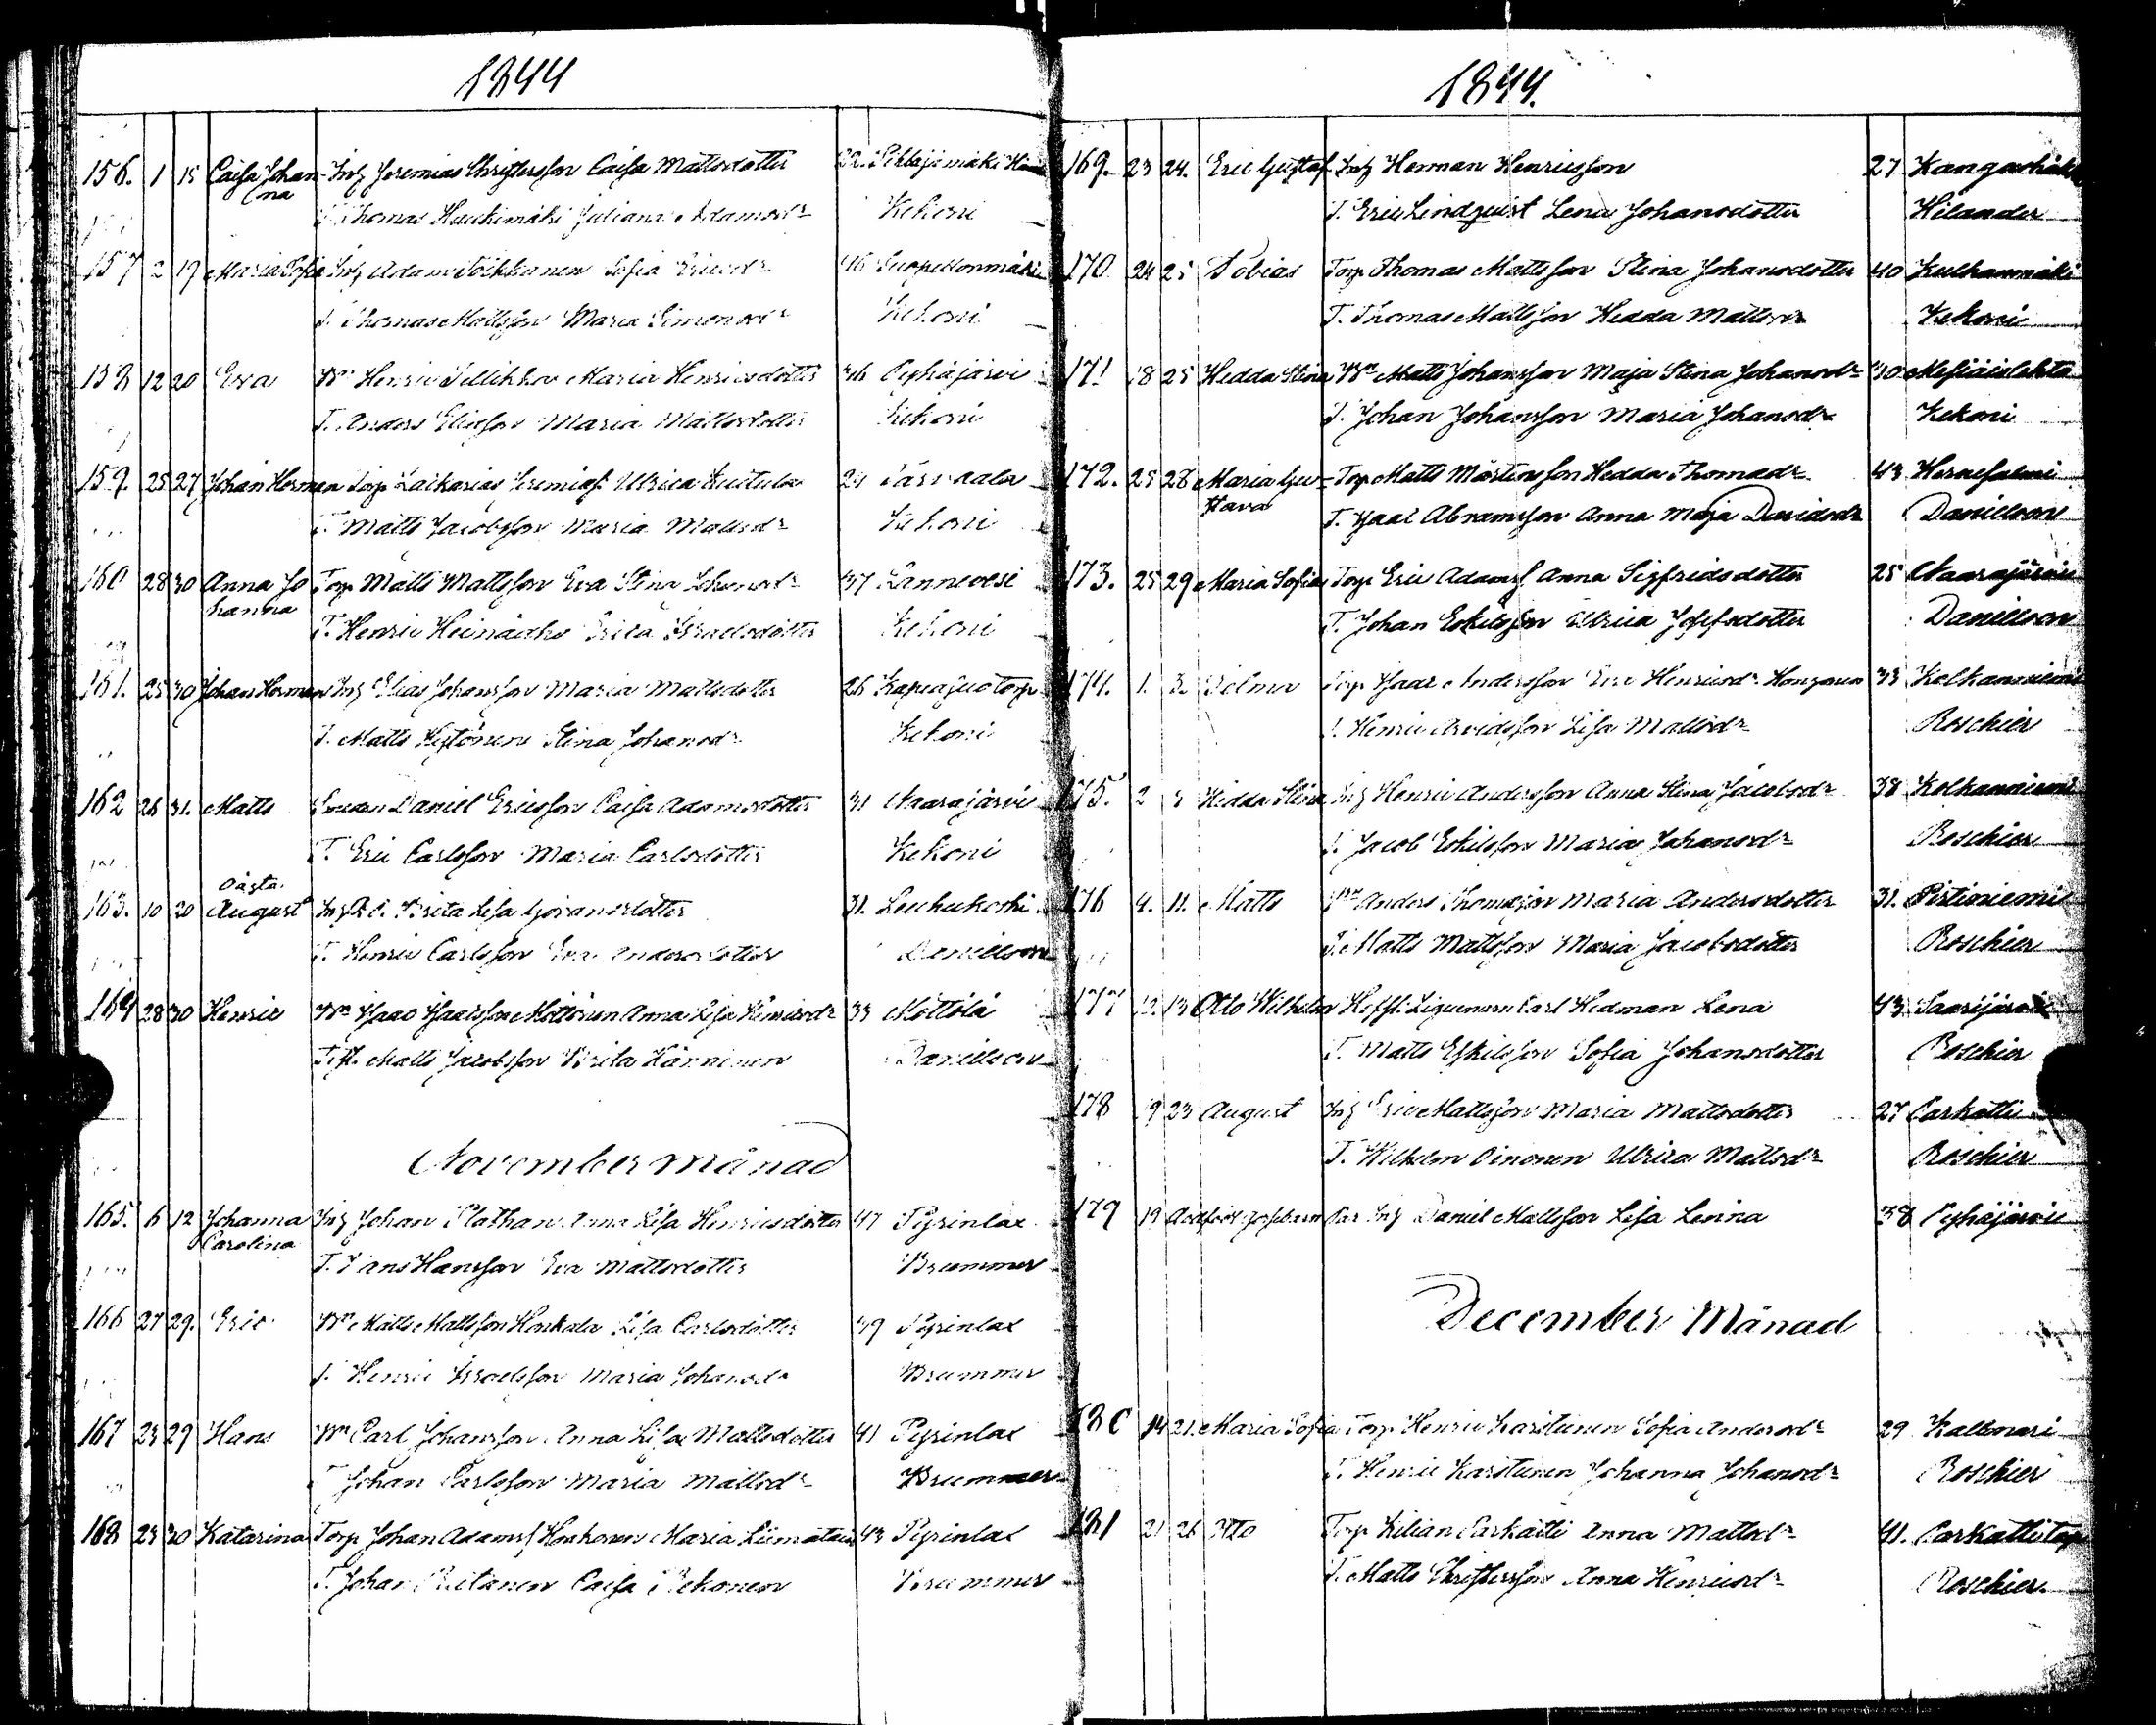 1844
156. 1 15 Caisa Johan- Inh Jeremias Christersson Caisa Mattsdotter 22.
na
T. Thomas Haukimäki Juliana Adamsdr Kekoni
157 2 19 Maria Sofia Inh Adam Sofia Ericsdr 46
T. Thomas Mattsson Maria Simonsdr Kekoni
158 12 20 Eva Bn Henric Maria Henricsdotter 46 Pyhäjärvi
T. Anders Eliasson Maria Mattsdotter Kekoni
159. 25 27 Johan Herman Torp Zackarias Jeremiæs Ulrica
T. Matts Jacobsson Maria Mattsdr Kekoni
160 28 30 Anna Jo Torp Matts Mattsson Eva Stina Johansdr 37 Lannevesi
hanna
T. Henric Brita Israelsdotter Kekoni
161. 25 30 Johan Herman Inh Elias Johansson Maria Mattsdotter 26
T. Matts Stina Johansdr Kekoni
162 26 31. Matts Daniel Ericsson Caisa Adamsdotter 31 Naarajärvi
T. Eric Carlsson Maria Carlsdotter Kekoni
oägta
163. 10 20 August Brita Lisa Göransdotter 31. Leuhukoski
T. Henric Carlsson Eva Andersdotter Danielson
164 28 30 Henric Bn Isaac Isaacsson Möttönen Anna Lisa Henricsdr 33 Möttölä
Matts Jacobsson Brita Känninen Danielson
November månad
165. 6 12 Johanna Inh Johan Plathan Anna Lisa Henricsdotter 47 Pyrinlax
Carolina
T. Hans Hansson Eva Mattsdotter Brummer
166 27 29. Eric Bn Matts Mattsson Honkala Lisa Carlsdotter 39 Pyrinlax
T. Henric Israelsson Maria Johansdr Brummer
167 23 29 Hans Bn Carl Johansson Anna Lisa Mattsdotter 41 Pyrinlax
T. Johan Carlsson Maria Mattsdr Brummer
168 23 30 Katarina Torp Johan Adamss Honkonen Maria Liimatain 43 Pyrinlax
T. Johan Caisa Rekonen Brummer
1844.
169. 23 24. Eric Gustaf Inh Herman Henricsson 27
T. Eric Lindquist Lena Johansdotter Hilander
170. 24 25 Tobias Torp Thomas Mattsson Stina Johansdotter 40 Kulhanmäki
T. Thomas Mattsson Hedda Mattsdr Kekoni
171 18 25 Hedda Stina Bn Matts Johansson Maja Stina Johansdr 40
T. Johan Johansson Maria Johansdr Kekoni
172. 25 28 Maria Gus- Torp Matts Mårtensson Hedda Thomadr 43
tava
T. Isaac Abramsson Anna Maja Davidsdr Danielson
173. 25 29 Maria Sofia Torp Eric Adamss Anna Sigfridsdotter 25 Naarajärvi
T. Johan Eskilsson Ulrica Josefsdotter Danielson
174. 1. 3. Torp Isaac Andersson Eva Henricsdr 33 Kolkanniemi
T. Henric Arvidsson Lisa Mattsdr Roschier
175. 2 Hedda Stina Inh Henric Andersson Anna Stina Jacobsdr 38 Kolkanniemi
T. Jacob Eskilsson Maria Johansdr Roschier
176 4. 11. Matts Bn Anders Thomasson Maria Andersdotter 31. Pirtiniemi
T. Matts Mattsson Maria Jacobsdotter Roschier
177 13 Otto Wilhelm Carl Hedman Lena 43 Saarijärvi
T. Matts Eskilsson Sofia Johansdotter Roschier
178 19 23 August Inh Eric Mattsson Maria Mattsdotter 27 Carkatti
T. Wilhelm Oinonen Ulrica Mattsdr Roschier
179 19 Inh Daniel Mattsson Lisa Levina 38 Pyhäjärvi
December Månad
180 14 21. Maria Sofia Torp Henric Karstunen Sofia Andersdr 29 Kalmari
T. Henric Karstunen Johanna Johansdr Roschier
181 21 26 Otto Torp Kilian Carkatti Anna Mattsdr 41. Carkatti torp
T. Matts Christersson Anna Henricsdr Roschier.